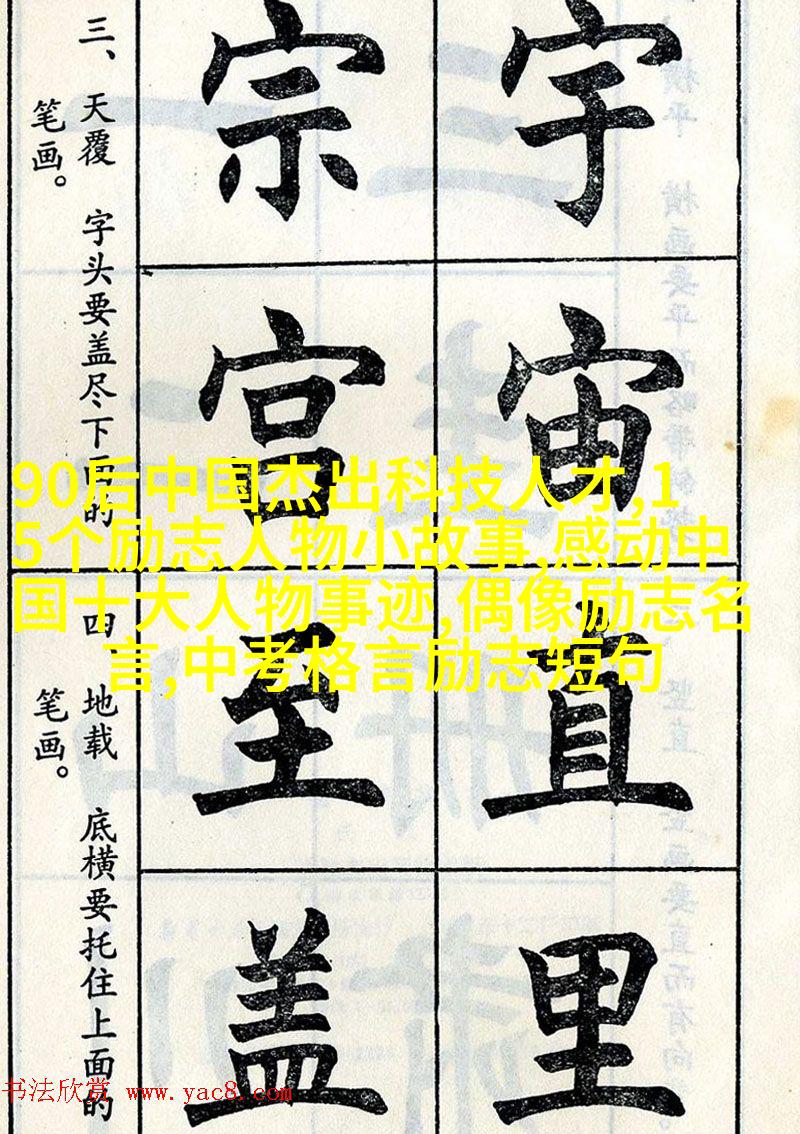 三、天覆 字头要盖尽下面的
笔画。
宇
宗
宙
宫
四、地载 底横要托住上面的
笔画。
直
至
里
盖
90后中国杰出科技人才,1
5个励志人物小故事,感动中
国十大人物事迹,偶像励志名
言,中考格言励志短句
书法欣赏 www.yac8.com